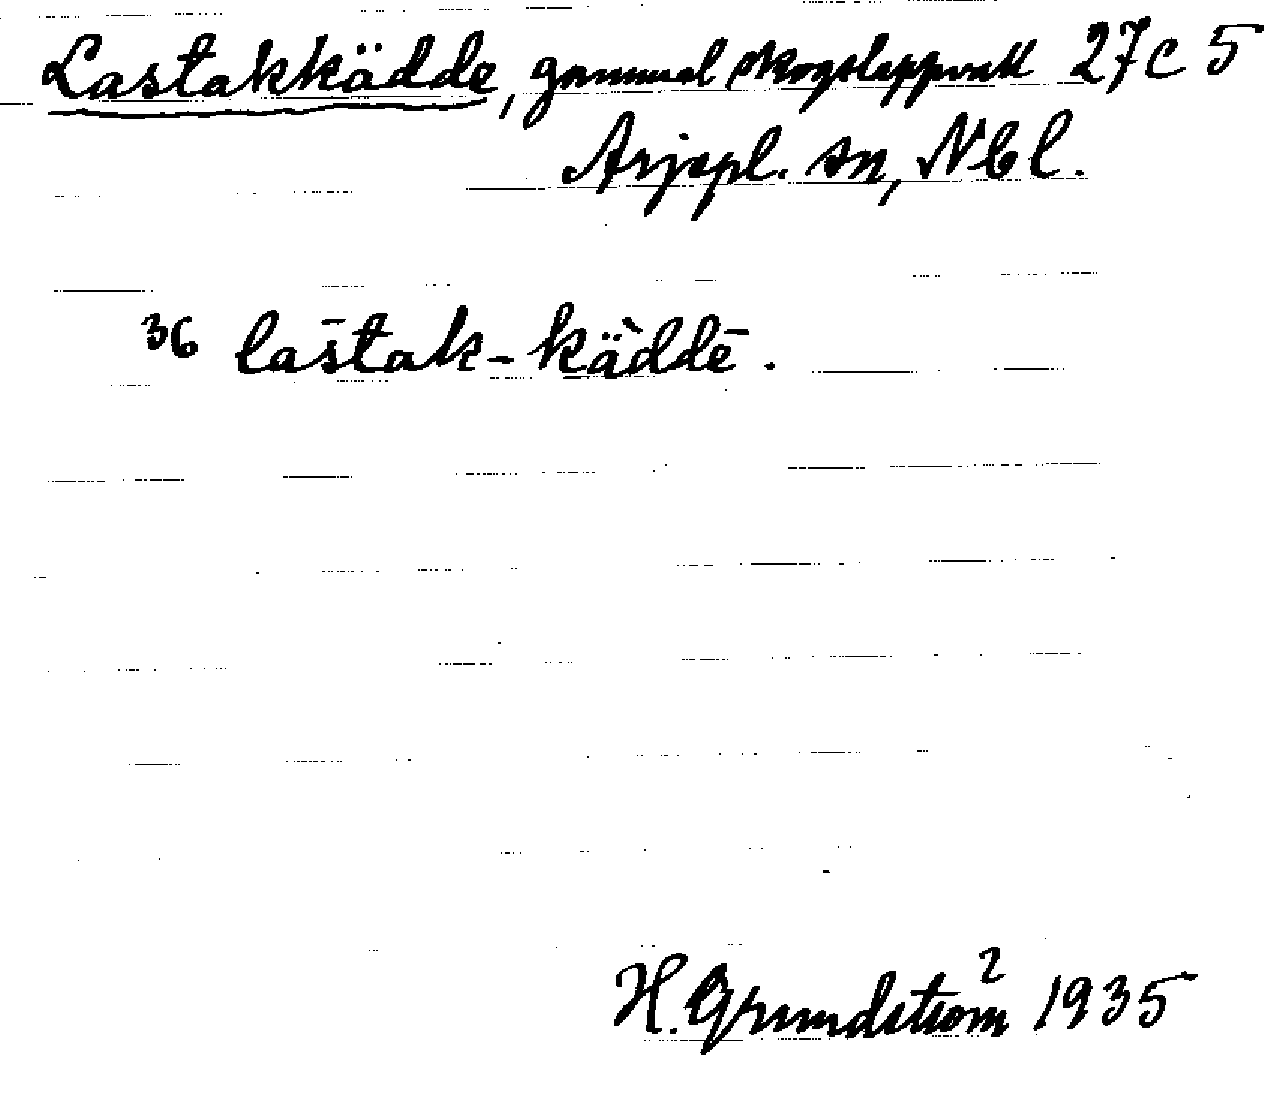 Lastakkädde, gammal skogslappvall 27C 5
Arjepl. sn, Nbl.
36 las̄tak-kä̀ddē.
H. Grundström 2 1935